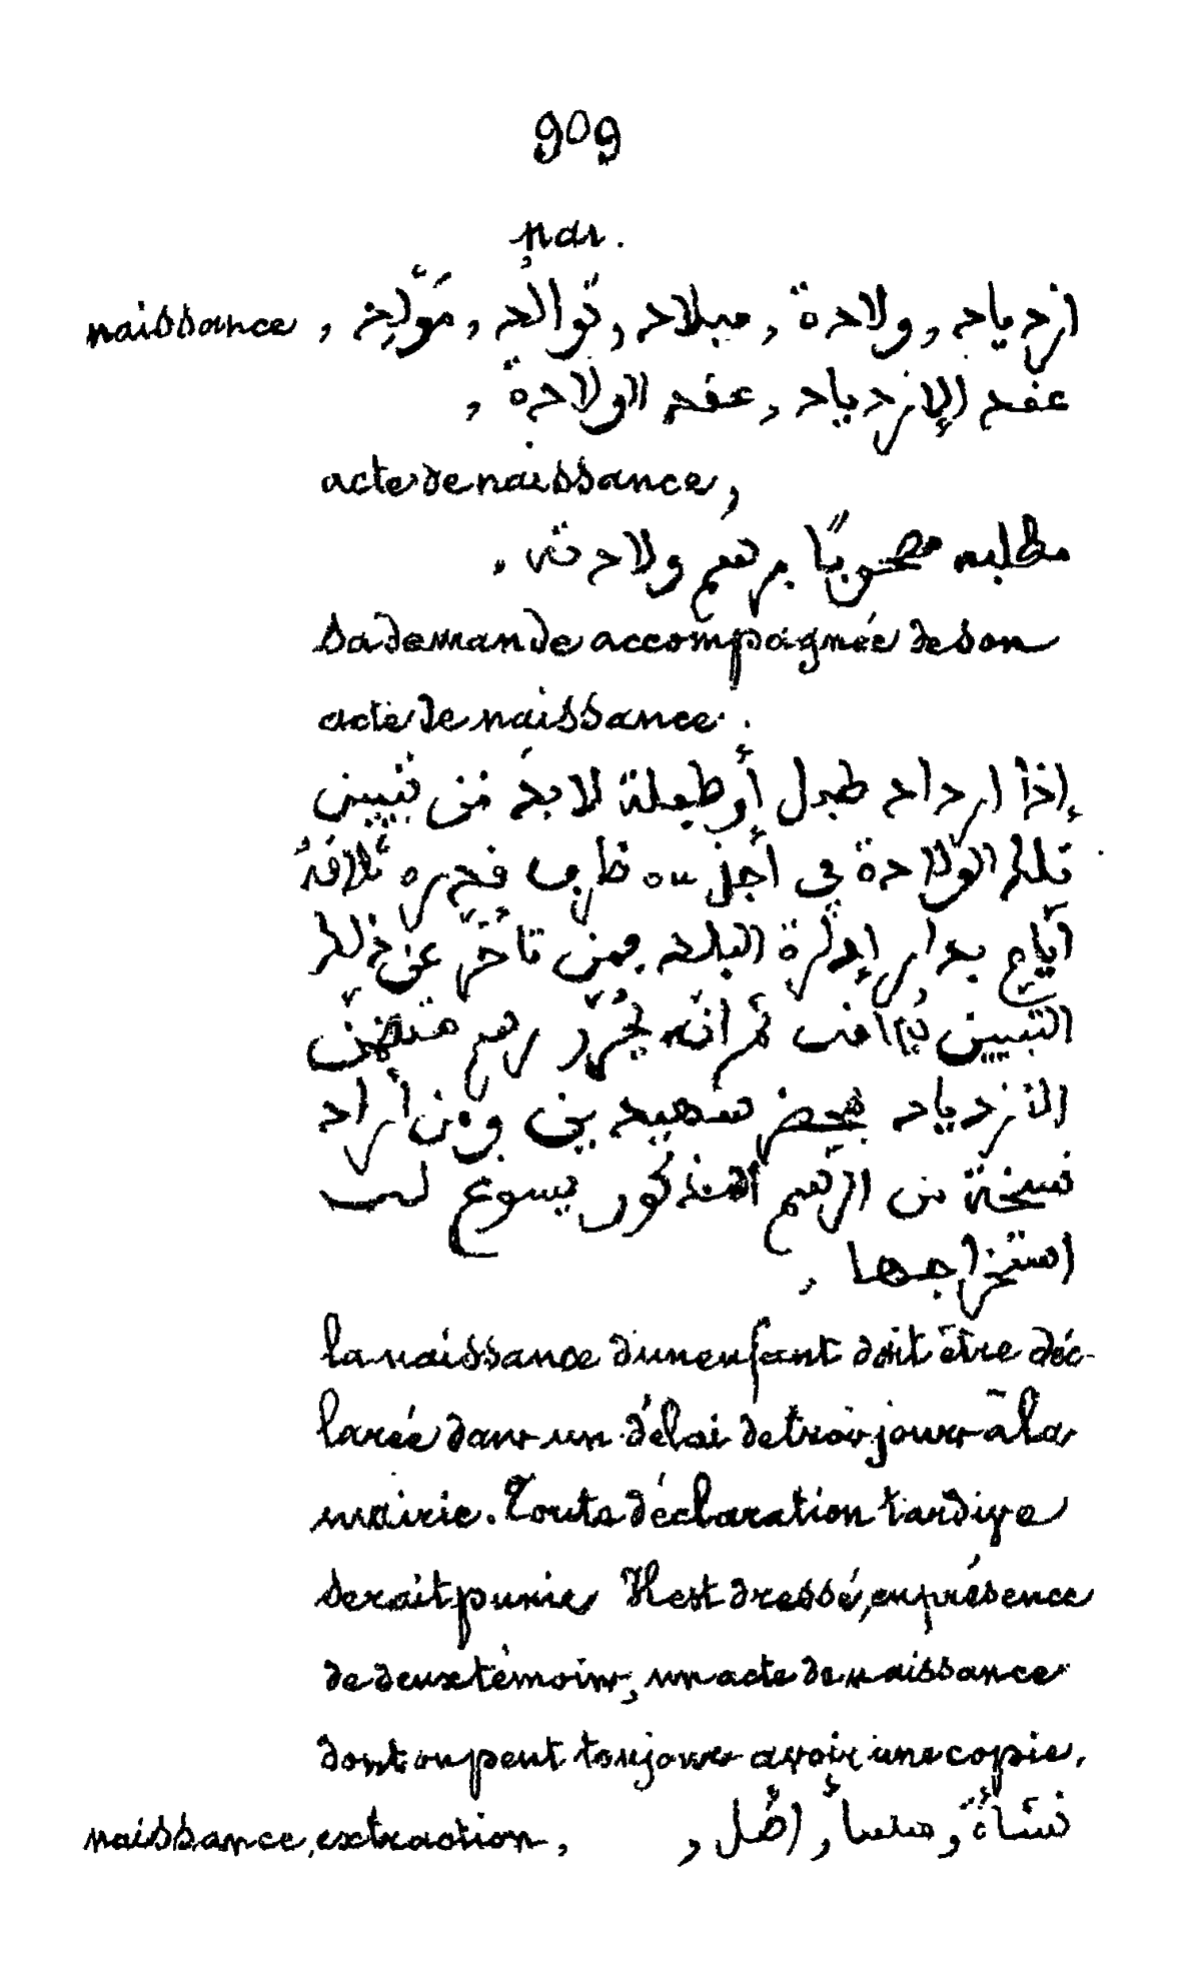 909
nai.
naissance, ازدياد, ولادة, ميلاد, توالد, مولد,
عقد الازدياد, عقد الولادة,
acte de naissance,
مطلبه مصحوبًا برسم ولادته.
sa demande accompagnée de son
acte de naissance.
إذا ازداد طفل أو طفلة لا بد من تبيين
تلك الولادة في أجل ظرف قدره ثلاثة
أيام بدار إدارة البلد فمن تأخر عن ذلك
التبيين ثم انه يحرر رسم
الازدياد بمحضر شهيدين ومن أراد
نسخة من الرسم المذكور يسوغ له
استخراجها,
la naissance d'un enfant doit être déc-
larée dans un délai de trois jours à la
mairie. Toute déclaration tardive
serait punie Il est dressé, en présence
de deux témoins, un acte de naissance
dont on peut toujours avoir une copie.
naissance, extraction, نشأة, منشأ, اصل,